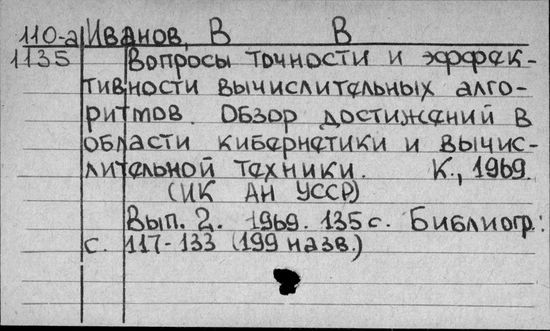 110-а Иванов, В В
1135 Вопросы точности и эффек-
тивности вычислительных алго-
ритмов. Обзор достижений в
области кибернетики и вычис-
лительной техники. К., 1969.
(ИК АН УССР)
Вып. 2. 1969. 135 с. Библиогр.:
с. 117-133 (199 назв.)